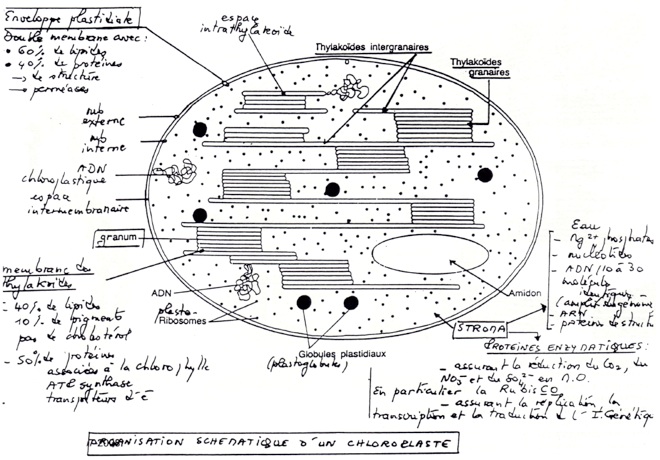 Enveloppe plastidiale
Double membrane avec:
• 60% de lipides
• 40% de protéines
→ de structure
→ perméases
espace
intrathylakoïde
Thylakoïdes intergranaires
Thylakoïdes
granaires
mb
externe
mb
interne
ADN
chloroplastique
espace
intermembranaire
granum
membrane des
thylakoïdes
- 40% de lipides
10% de pigment
pas de cholestérol
- 50% de protéines
associées à la chlorophylle
ATP synthase
transpteurs d'é
ADN
plasto-
Ribosomes
Globules plastidiaux
(plastoglobules)
Amidon
STROMA
Eau
- Mg2+ phosphates
- nucléotides
- ADN (10 à 30
molécules
identiques
- ARN
- protéines de struct
PROTEINES ENZYMATIQUES:
- assurant la réduction du CO2, du
NO3- et du SO4 2- en M.O.
En particulier la RubisCO
- assurant la réplication, la
transcription et la traduction de l'I.Génétiq
ORGANISATION SCHEMATIQUE D'UN CHLOROPLASTE